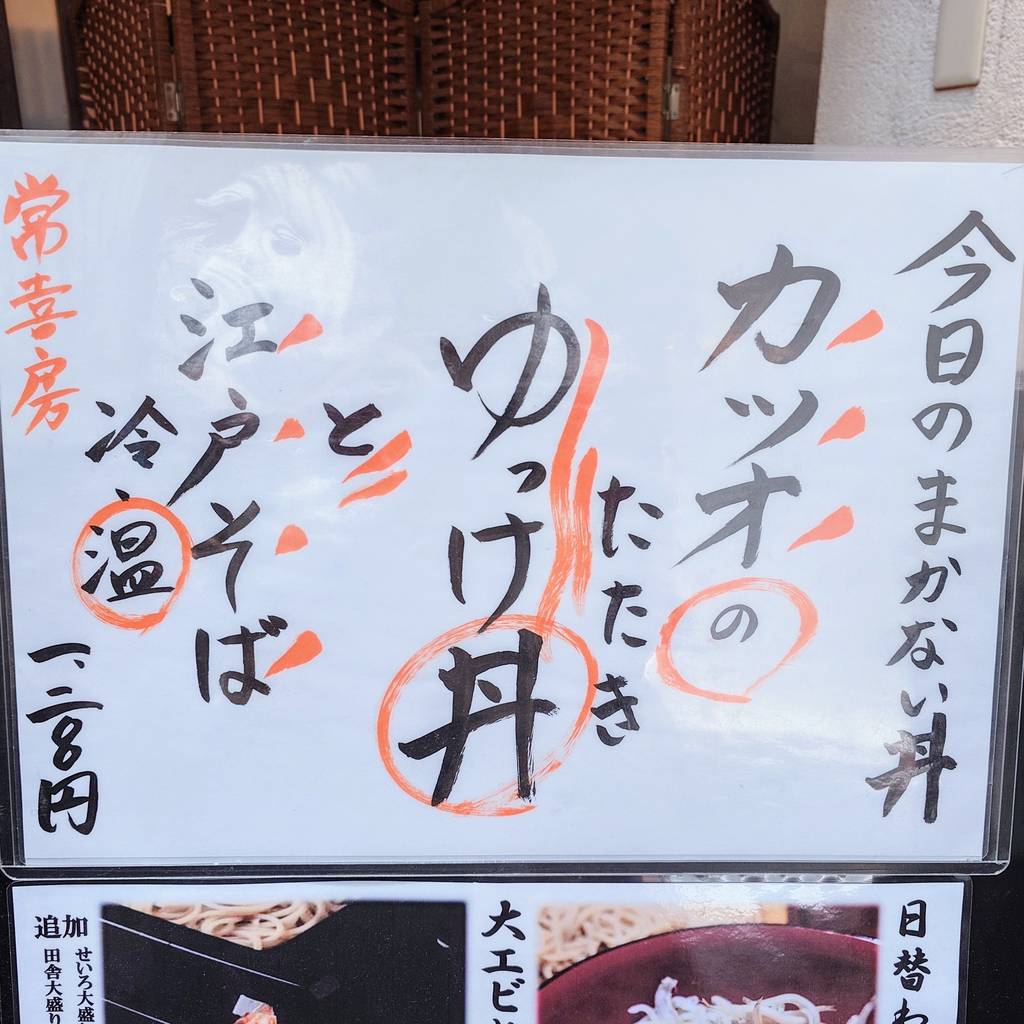 今日のまかない丼
カツオの
たたき
ゆっけ丼
と
江戸そば
冷、温
一、二〇〇円
常喜房
日替わ
大エビと
追加
せいろ大盛
田舎大盛り